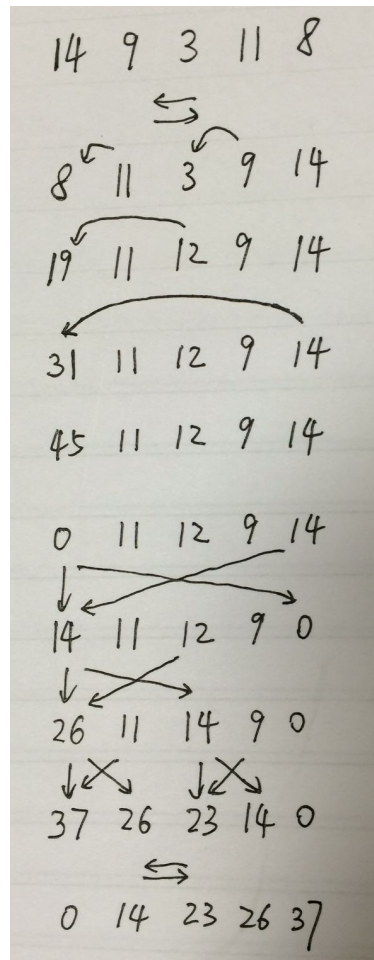 14 9 3 11 8
8 11 3 9 14
19 11 12 9 14
31 11 12 9 14
45 11 12 9 14
0 11 12 9 14
14 11 12 9 0
26 11 14 9 0
37 26 23 14 0
0 14 23 26 37